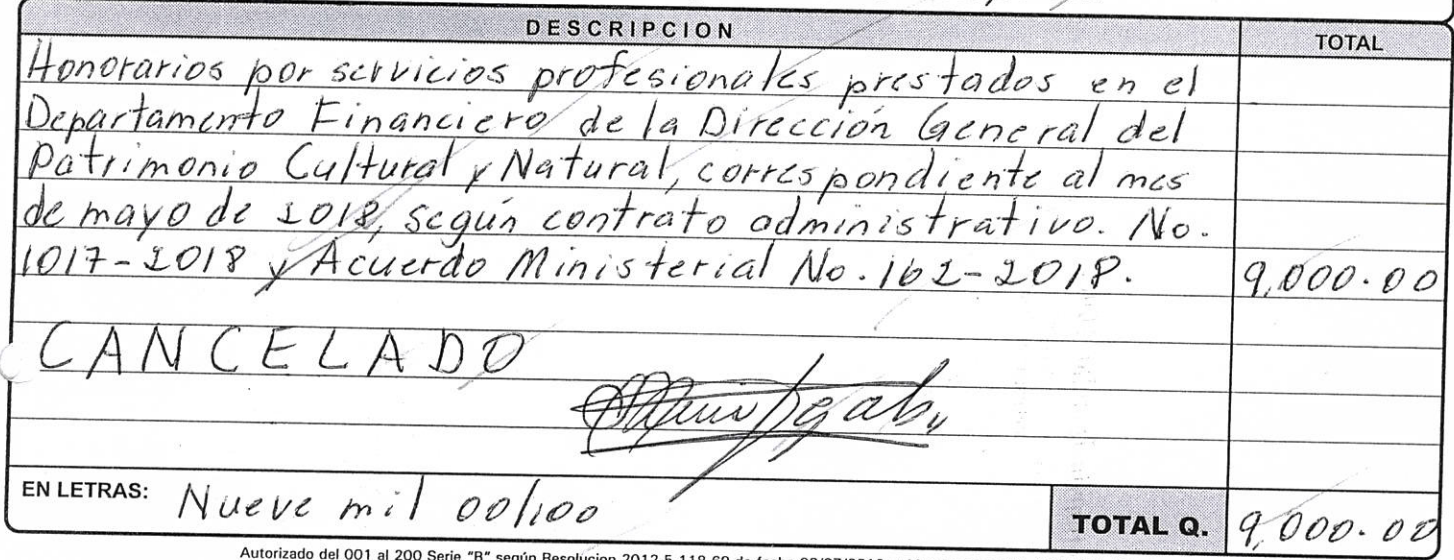 DESCRIPCION TOTAL
Honorarios por servicios profesionales prestados en el
Departamento Financiero de la Dirección General del
Patrimonio Cultural y Natural, correspondiente al mes
de mayo de 2018, según contrato administrativo. No.
1017-2018 y Acuerdo Ministerial No. 162-2018. 9,000.00
CANCELADO
EN LETRAS: Nueve mil 00/100 TOTAL Q. 9,000.00
Autorizado del 001 al 200 Serie "B" según Resolucion 2012-5-118-69 de fecha